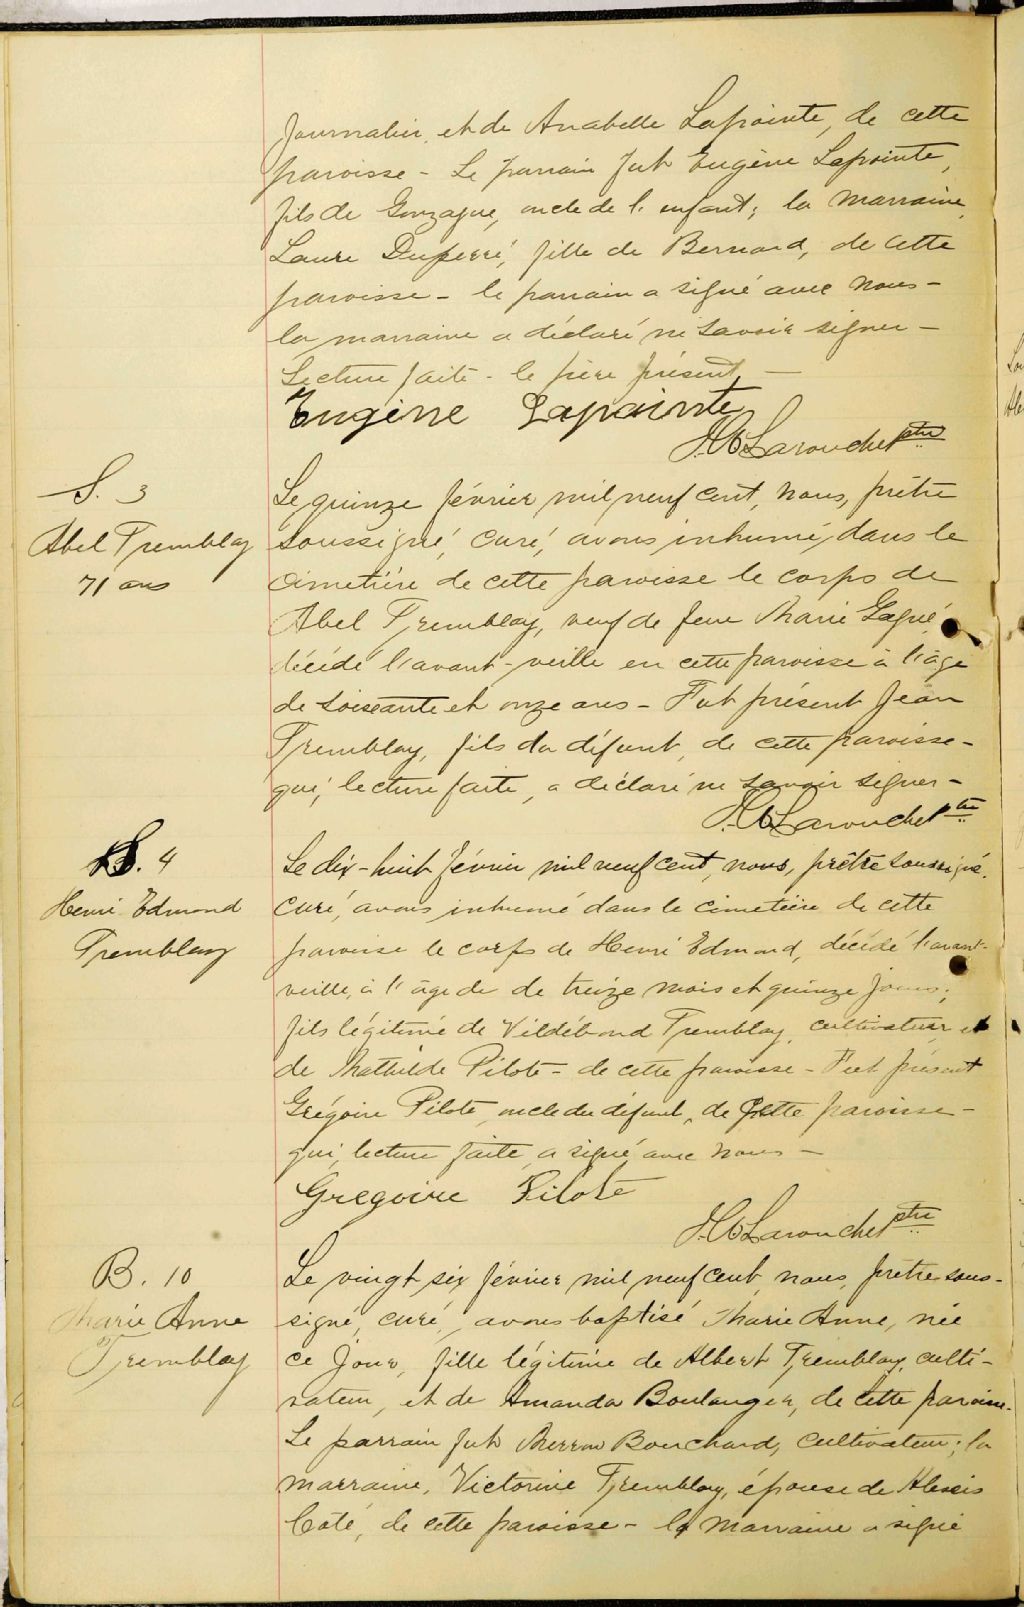 Journalier, et de Anabelle Lapointe, de cette
paroisse - Le parrain fut Eugène Lapointe,
fils de Gonzague, oncle de l'enfant; la marraine,
Laure Duperré, fille de Bernard, de cette
paroisse - le parrain a signé avec nous -
la marraine a déclaré ne savoir signer -
Lecture faite - le père présent -
Eugène Lapointe
Larouche ptre
S. 3
Abel Tremblay
71 ans
Le quinze février mil neuf cent, nous, prêtre
soussigné, curé, avons inhumé dans le
cimetière de cette paroisse le corps de
Abel Tremblay, veuf de feue Marie Gagné,
décédé l'avant-veille en cette paroisse à l'âge
de soixante et onze ans - Fut présent Jean
Tremblay, fils du défunt, de cette paroisse -
qui, lecture faite, a déclaré ne savoir signer -
Larouche ptre
S. 4
Henri Edmond
Tremblay
Le dix-huit février mil neuf cent, nous, prêtre soussigné,
curé, avons inhumé dans le cimetière de cette
paroisse le corps de Henri Edmond, décédé l'avant-
veille, à l'âge de de treize mois et quinze jours,
fils légitime de Vildébond Tremblay, cultivateur et
de Mathilde Pilote - de cette paroisse - Fut présent
Grégoire Pilote, oncle du défunt, de cette paroisse -
qui, lecture faite, a signé avec nous -
Gregoire Pilote
Larouche ptre
B. 10
Marie Anne
Tremblay
Le vingt six février mil neuf cent, nous, prêtre sous-
signé, curé, avons baptisé Marie Anne, née
ce jour, fille légitime de Albert Tremblay, culti-
vateur, et de Amanda Boulanger, de cette paroisse.
Le parrain fut Bouchard, cultivateur; la
marraine, Victorine Tremblay, épouse de Alexis
Coté, de cette paroisse - la marraine a signé